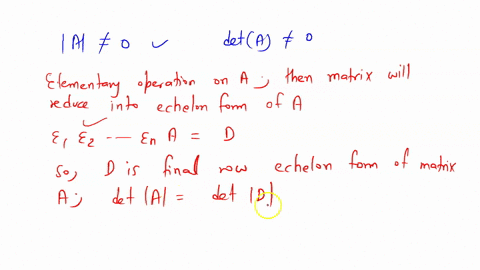 |A| ≠ 0 ✓ det(A) ≠ 0
Elementary operation on A; then matrix will
reduce into echelon form of A
ε₁ ε₂ --- εₙ A = D
So, D is final row echelon form of matrix
A; det |A| = det |D|